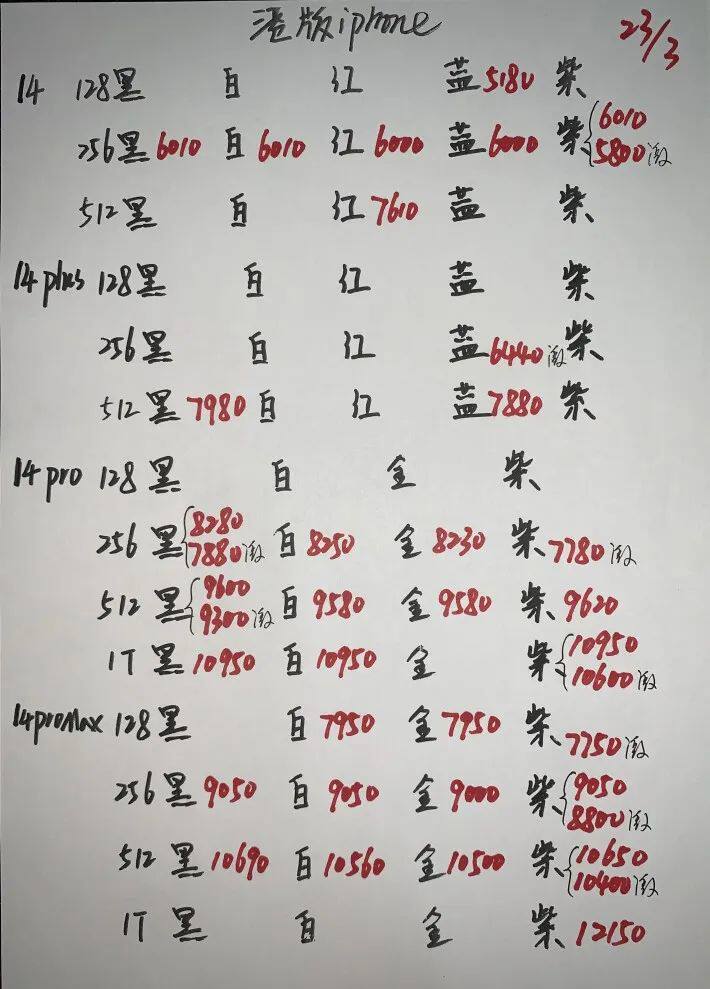 港版iphone 23/3
14 128黑 白 红 蓝5180 紫
256黑6010 白6010 红6000 蓝6000 紫{6010
5800激
512黑 白 红7610 蓝 紫
14plus 128黑 白 红 蓝 紫
256黑 白 红 蓝6440激 紫
512黑7980 白 红 蓝7880 紫
14pro 128黑 白 金 紫
256黑{8280 白8250 金8230 紫7780激
7880激
512黑{9600 白9580 金9580 紫9620
9300激
1T黑10950 白10950 金 紫{10950
10600激
14proMax 128黑 白7950 金7950 紫7750激
256黑9050 白9050 金9000 紫{9050
8800激
512黑10690 白10560 金10500 紫{10650
10400激
1T黑 白 金 紫12150